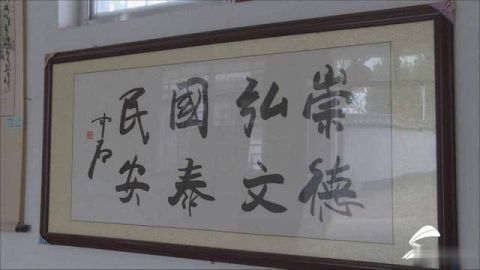 崇德
弘文
國泰
民安